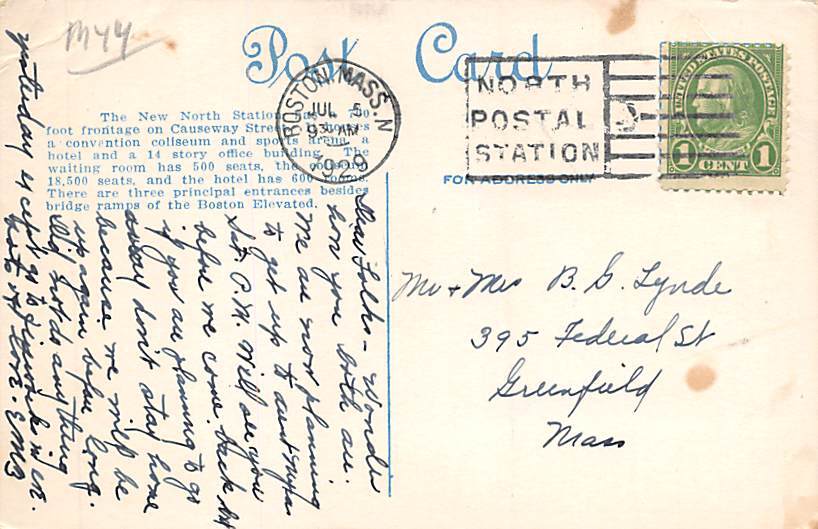 M44
Post Card
BOSTON, MASS. N
JUL 5
930 AM
1929
NORTH
POSTAL
STATION
UNITED STATES POSTAGE
1 CENT 1
FOR ADDRESS ONLY
The New North Station has
foot frontage on Causeway Street
a convention coliseum and sports arena, a
hotel and a 14 story office building. The
waiting room has 500 seats, the coliseum
18,500 seats, and the hotel has 600 rooms.
There are three principal entrances besides
bridge ramps of the Boston Elevated.
Dear Folks - Wonder
how you both are.
We are now planning
to get up to
Sat. P.M. Will see you
before we come back but
if you are planning to go
away don't stay home
because we will be
up again before long.
Did not do anything
yesterday except go to
lots of love. EMB
Mr + Mrs B. G. Lynde
395 Federal St
Greenfield
Mass